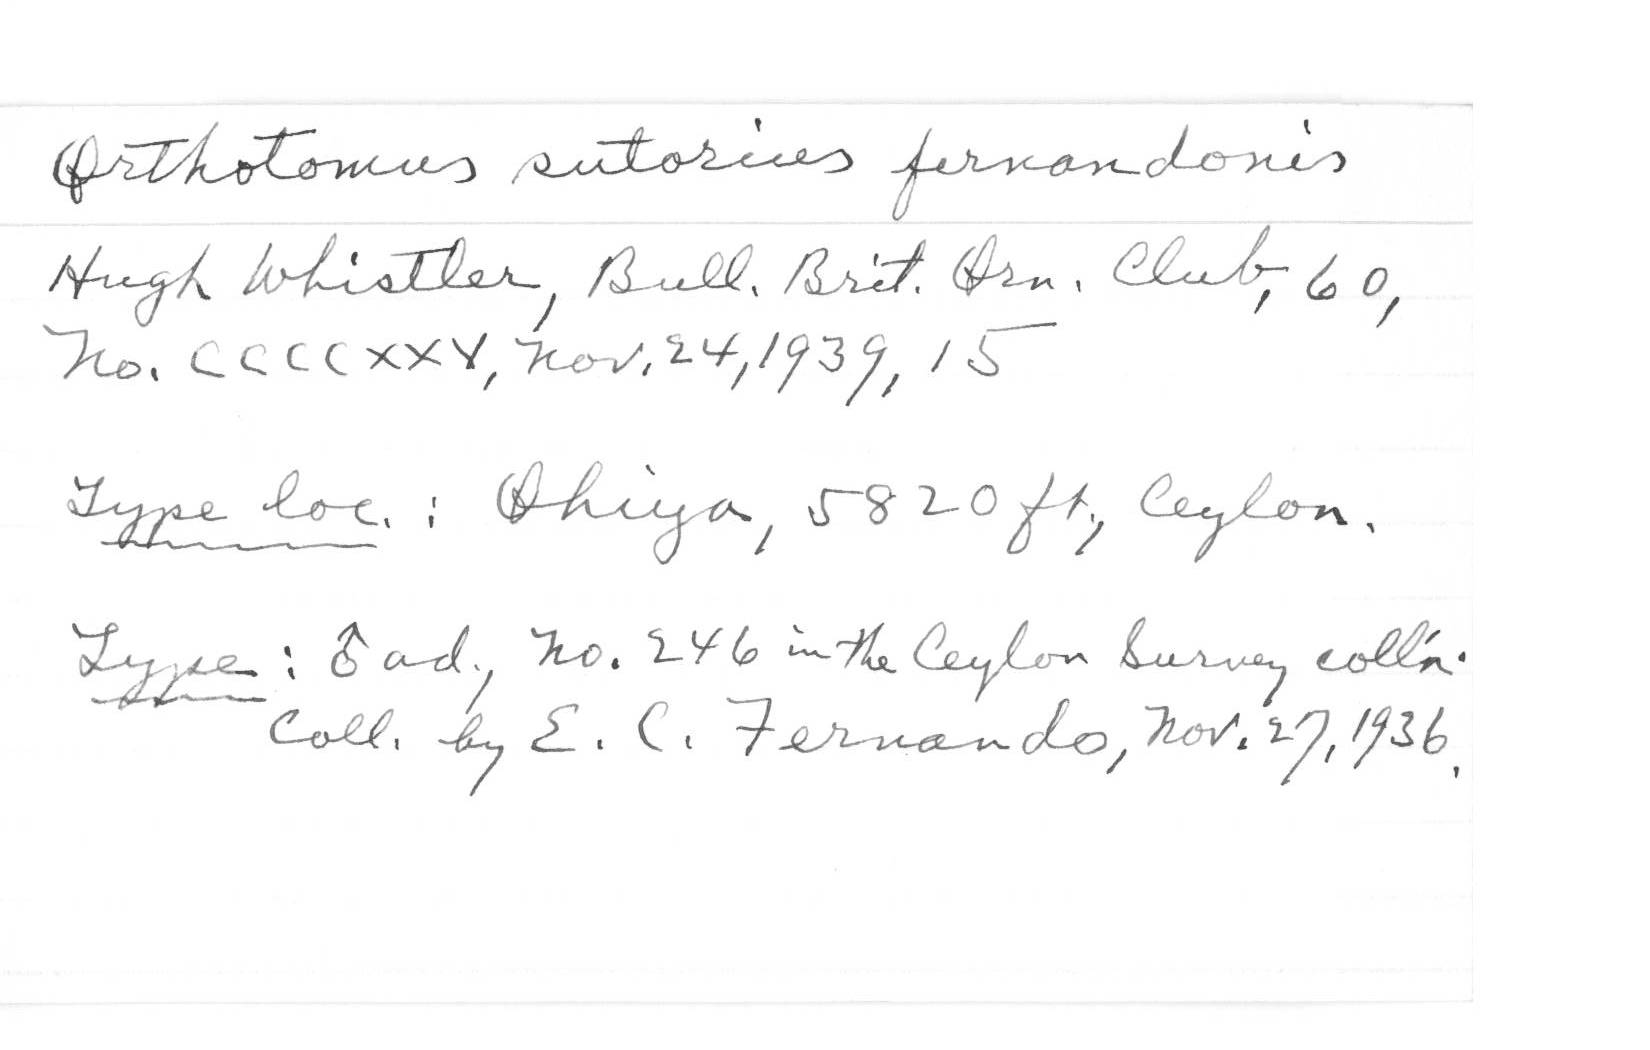 Orthotomus sutorius fernandonis
Hugh Whistler, Bull. Brit. Orn. Club, 60,
No. CCCCXXV, Nov. 24, 1939, 15
Type loc. : Ohiya, 5820 ft., Ceylon.
Type : ♂ ad., No. 246 in the Ceylon Survey coll'n.
Coll. by E. C. Fernando, Nov. 27, 1936.